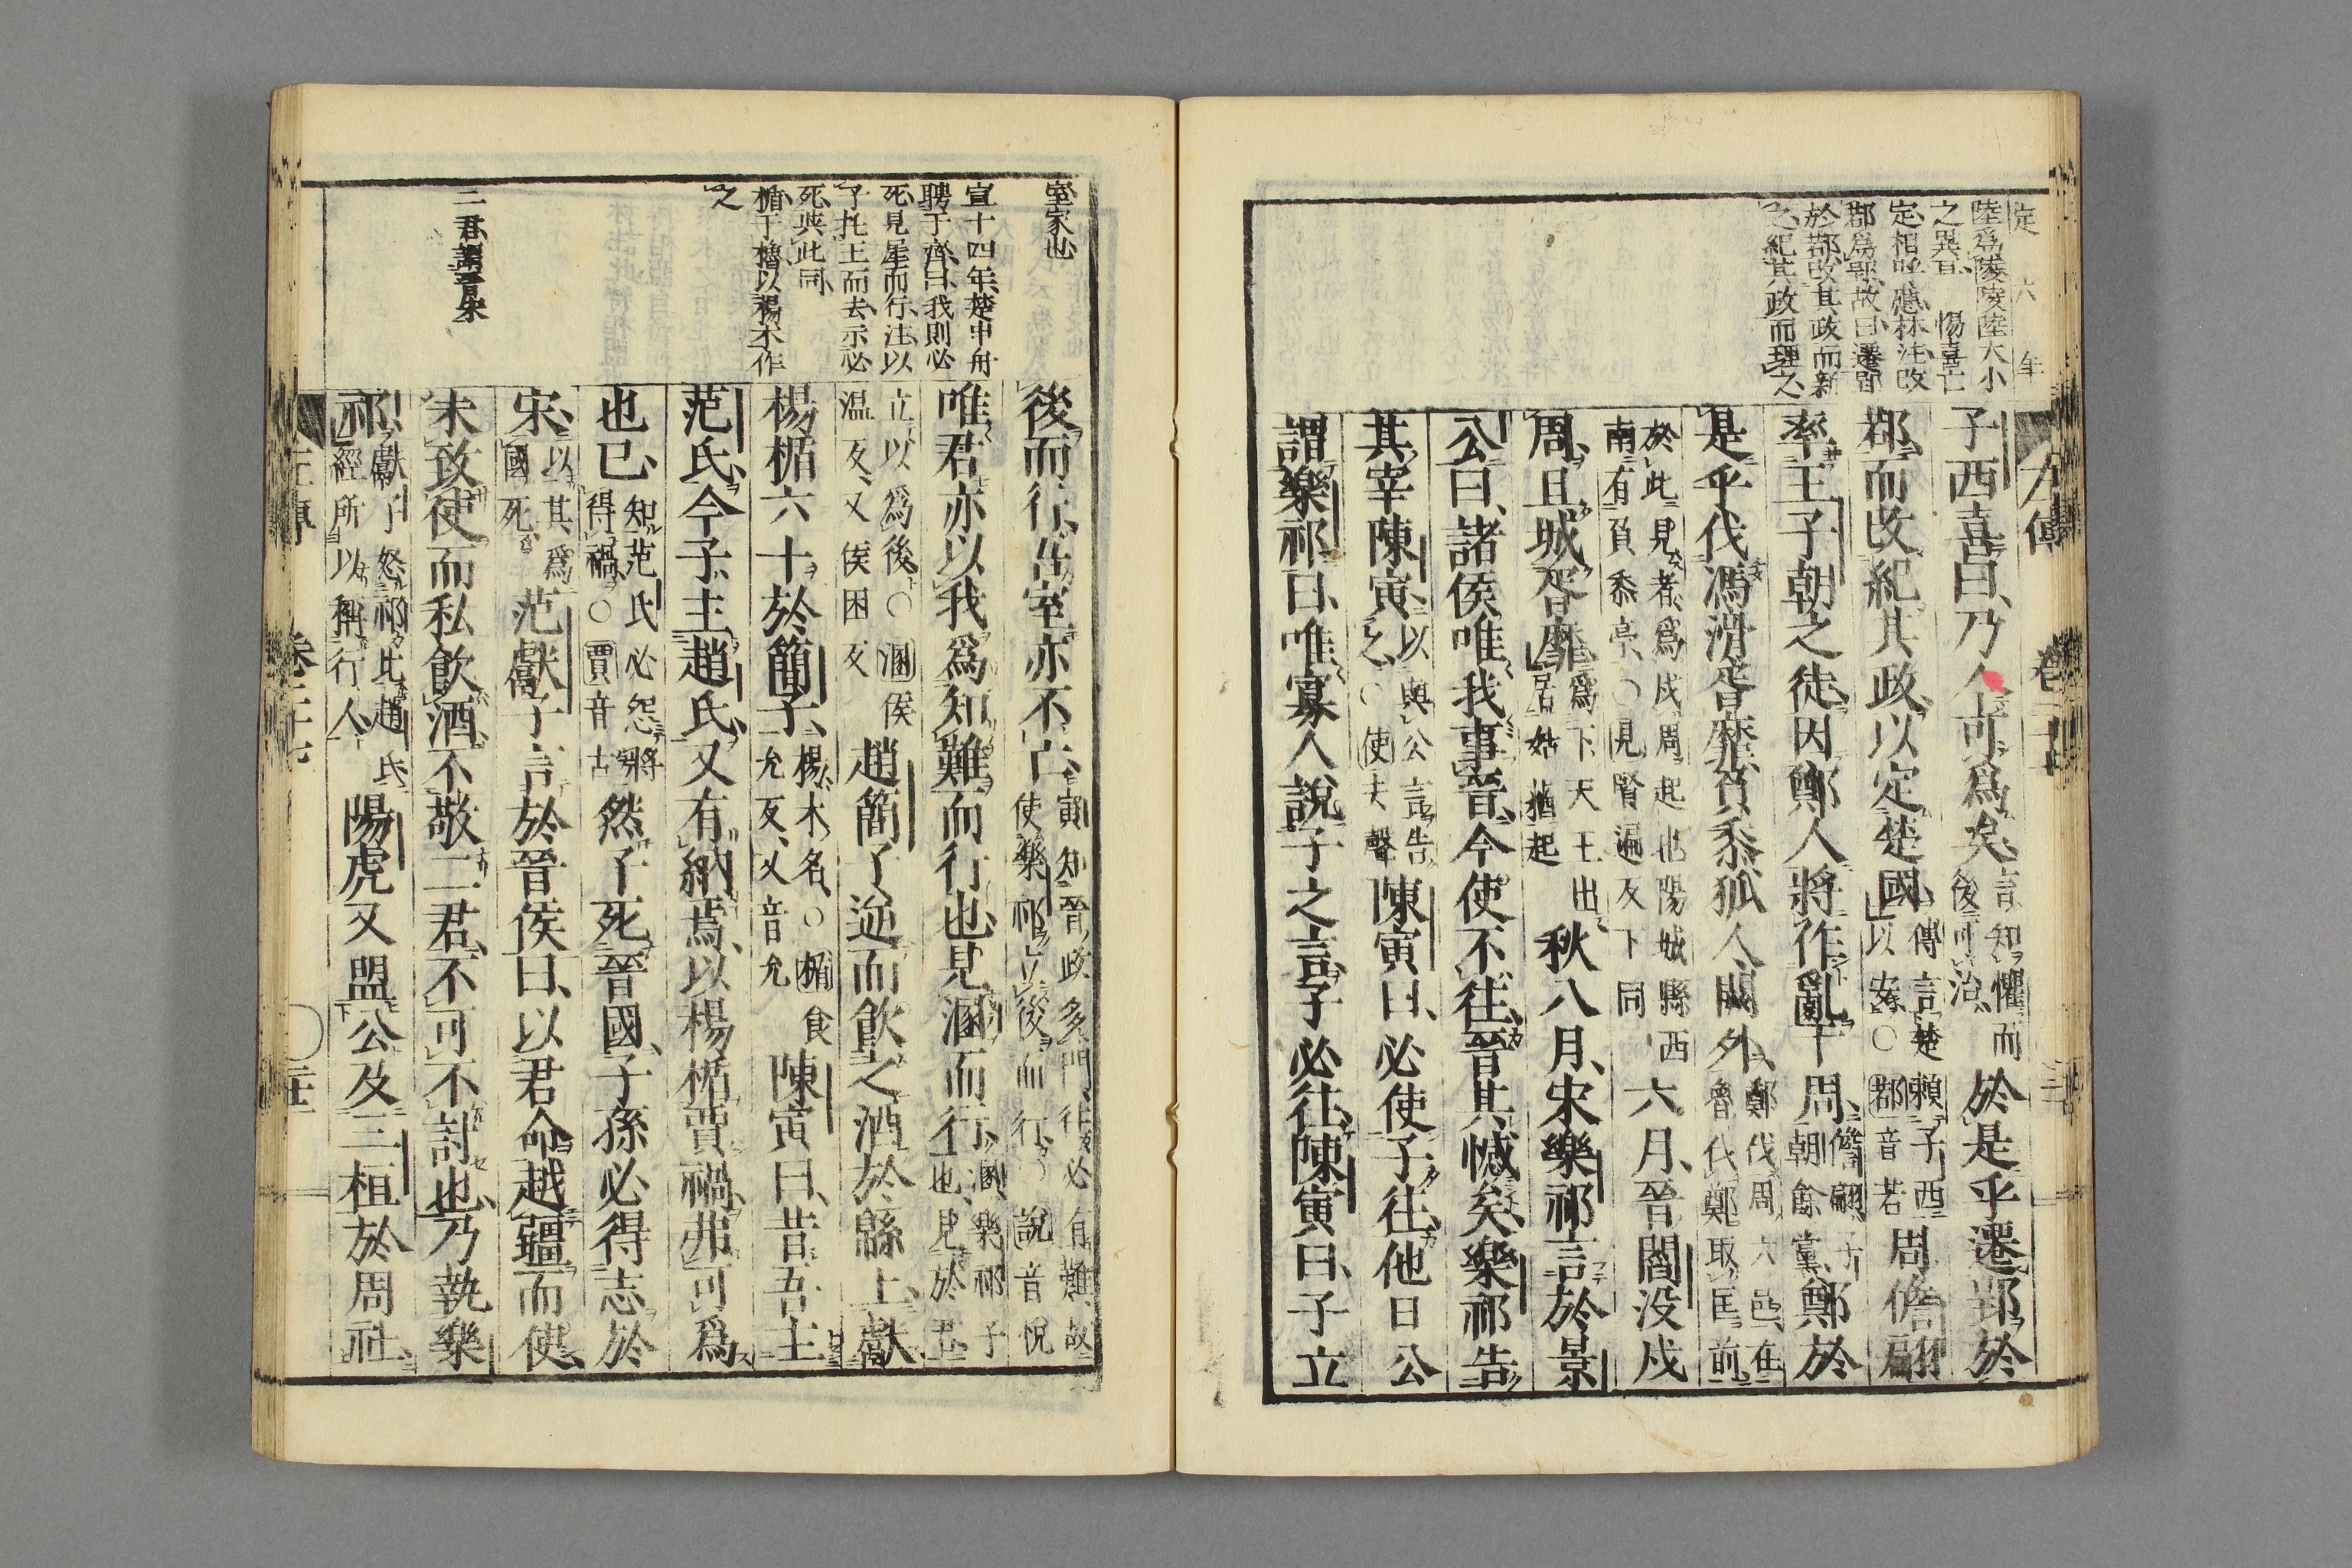 定六年
陸爲陵陵陸大小
之異耳 惕喜亡
定相
鄀爲郢故曰遷郢
於鄀改其政而新
之紀其政而理之
左傳
子西喜曰乃今可爲矣言知懼而後可治於是乎遷郢於
鄀而改紀其政以定楚國傳言楚賴子西以安○鄀音若周儋翩
率王子朝之徒因鄭人將作亂于周儋翩子朝餘黨鄭於
是乎伐馮滑胥靡負黍狐人闕外鄭伐周六邑在魯伐鄭取匡前
於此見者爲戍周起也陽城縣西南有負黍亭○見賢遍反下同六月晉閻没戍
周且城胥靡爲下天王出居姑蕕起秋八月宋樂祁言於景
公曰諸侯唯我事晉今使不往晉其憾矣樂祁告
其宰陳寅以與公言告之○使去聲陳寅曰必使子往他日公
謂樂祁曰唯寡人說子之言子必往陳寅曰子立
室家也
宣十四年楚申舟
聘于齊曰我則必
死見犀而行注以
子托王而去示必
死與此同
楯于櫓以楊木作
之
二君謂晉宋
後而行吾室亦不亡寅知晉政多門往必有難故使樂祁立後而行○說音悅
唯君亦以我爲知難而行也見溷而行溷樂祁子也見於君
立以爲後○溷侯温反又侯困反趙簡子逆而飲之酒於緜上獻
楊楯六十於簡子楊木名○楯食允反又音允陳寅曰昔吾主
范氏今子主趙氏又有納焉以楊楯賈禍弗可爲
也已知范氏必怨將得禍○賈音古然子死晉國子孫必得志於
宋以其爲國死范獻子言於晉侯曰以君命越疆而使
未致使而私飲酒不敬二君不可不討也乃執樂
祁獻子怒祁比趙氏經所以稱行人陽虎又盟公及三桓於周社